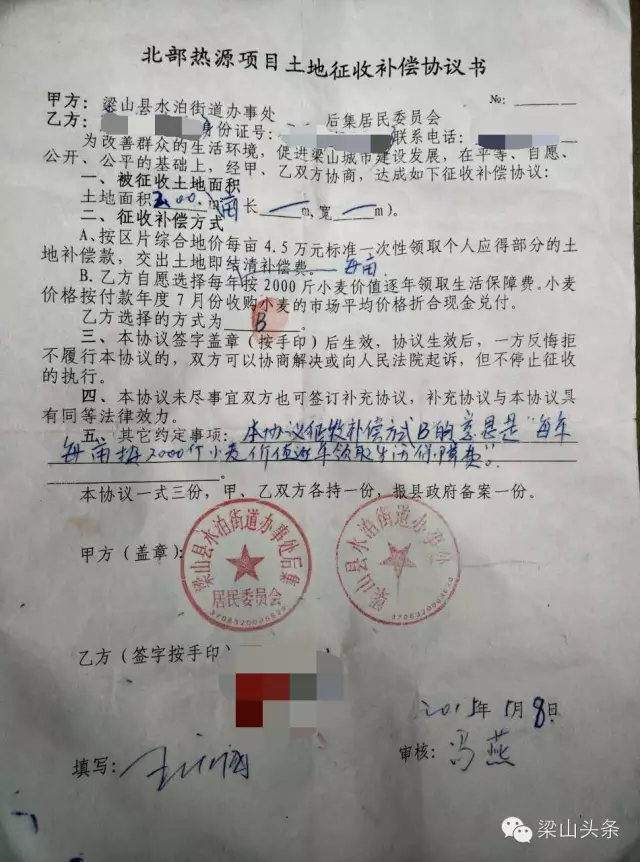 北部热源项目土地征收补偿协议书
№:
甲方：梁山县水泊街道办事处 后集居民委员会
乙方： 身份证号： 联系电话：
为改善群众的生活环境，促进梁山城市建设发展，在平等、自愿、
公开、公平的基础上，经甲、乙双方协商，达成如下征收补偿协议：
一、被征收土地面积
土地面积 亩 长 m,宽 m)。
二、征收补偿方式
A、按区片综合地价每亩 4.5 万元标准一次性领取个人应得部分的土
地补偿款，交出土地即结清补偿费。 每亩
B.乙方自愿选择每年按 2000 斤小麦价值逐年领取生活保障费。小麦
价格按付款年度 7 月份收购小麦的市场平均价格折合现金兑付。
乙方选择的方式为 B
三、本协议签字盖章（按手印）后生效，协议生效后，一方反悔拒
不履行本协议的，双方可以协商解决或向人民法院起诉，但不停止征收
的执行。
四、本协议未尽事宜双方也可签订补充协议，补充协议与本协议具
有同等法律效力。
五、其它约定事项：本协议征收补偿方式B的意思是“每年
每亩按2000斤小麦价值逐年领取生活保障费”。
本协议一式三份，甲、乙双方各持一份，报县政府备案一份。
甲方（盖章）：
梁山县水泊街道办事处后集
居民委员会
梁山县水泊街道办事处
乙方（签字按手印）
2015年 1月 8日
填写：
审核：冯燕
梁山头条